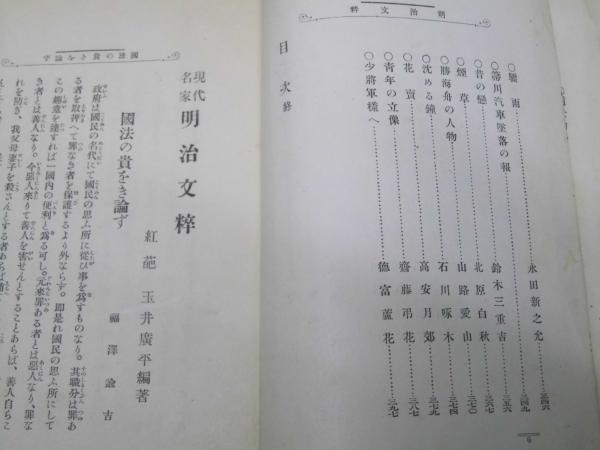 明治文粹
○驟雨……永田新之允……三四六
○淺川汽車墜落の報……三四九
○昔の戀……鈴木三重吉……三五六
○煙草……北原白秋……三六七
○勝海舟の人物……山路愛山……三七〇
○沈める鐘……石川啄木……三七四
○花賣……高安月郊……三七九
○靑年の立像……齋藤弔花……三八七
○少將軍樣へ……德富蘆花……三九七
目次終
6
國法の貴きを論ず
現代名家 明治文粹
紅葩 玉井廣平編著
國法の貴をき論ず
福澤諭吉
政府は國民の名代にて國民の思ふ所に從ひ事を爲すものなり。其職分は罪あ
る者を取押へて罪なき者を保護するより外ならず。卽是れ國民の思ふ所にして
この趣意を達すれば一國內の便利と爲る可し。元來罪ある者とは惡人なり、罪な
き者とは善人なり。今惡人來りて善人を害せんとすることあらば、善人自らこ
れを防ぎ、我父母妻子を殺さんとする者あらば捕